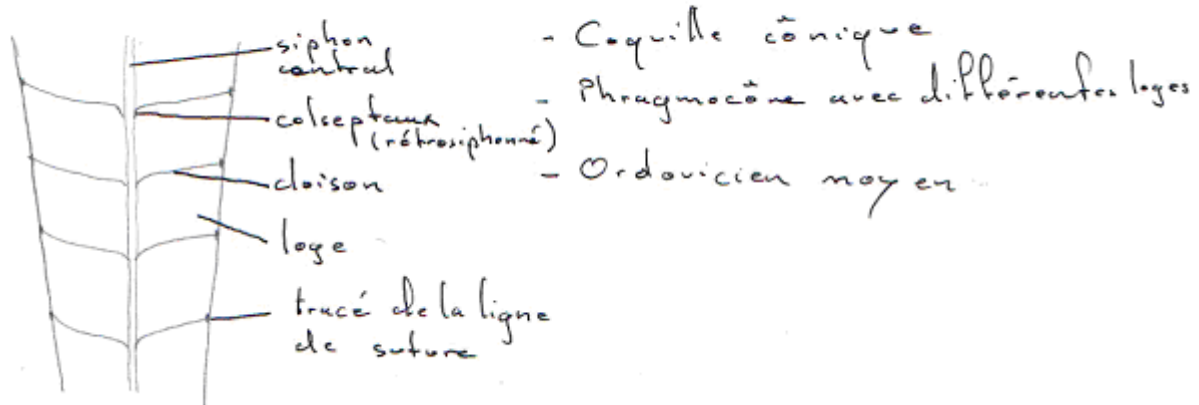 siphon
central
colseptaux
(rétrosiphonné)
cloison
loge
tracé de la ligne
de suture
- Coquille cônique
- Phragmocône avec différentes loges
- Ordovicien moyen